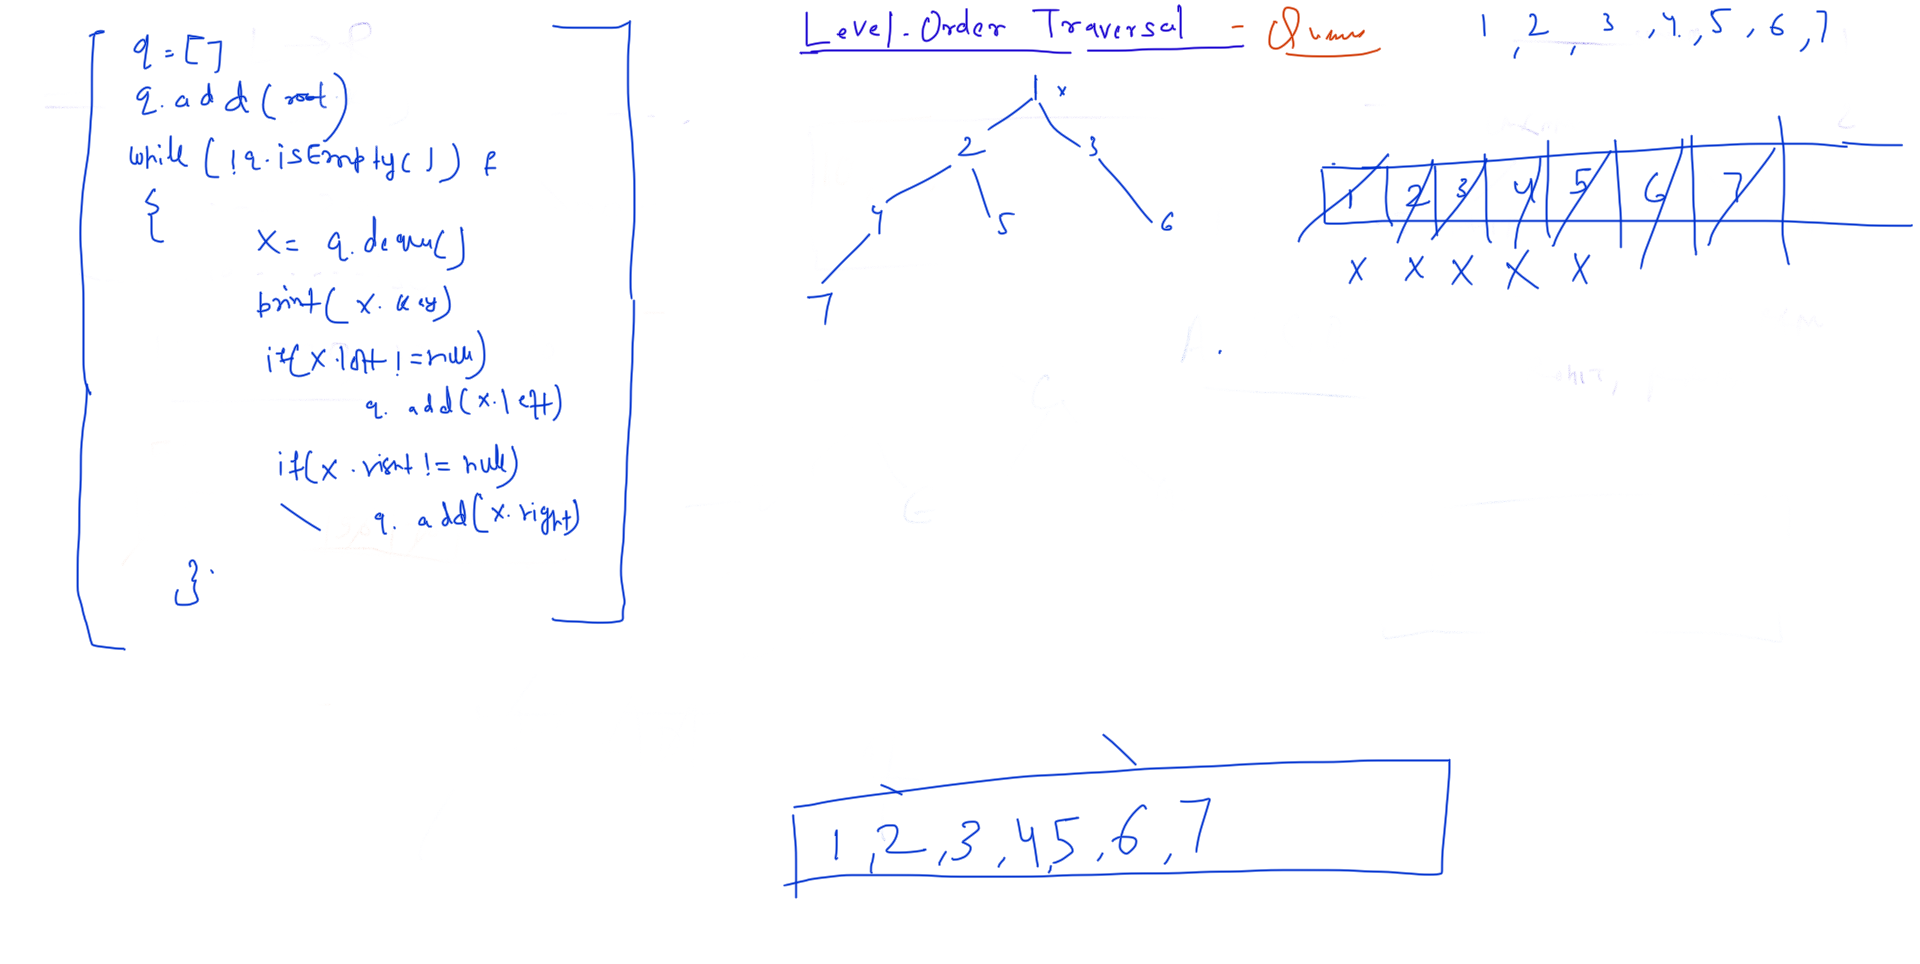 q = []
q. add (root)
while (!q.isEmpty())
{
x = q. dequeue()
print( x. key)
if(x.left != null)
q. add(x.left)
if(x.right != null)
q. add(x.right)
}
Level-Order Traversal - Queue
1, 2, 3, 4, 5, 6, 7
1 x
2 3
4 5 6
7
1 2 3 4 5 6 7
x x x x x
1, 2, 3, 4, 5, 6, 7